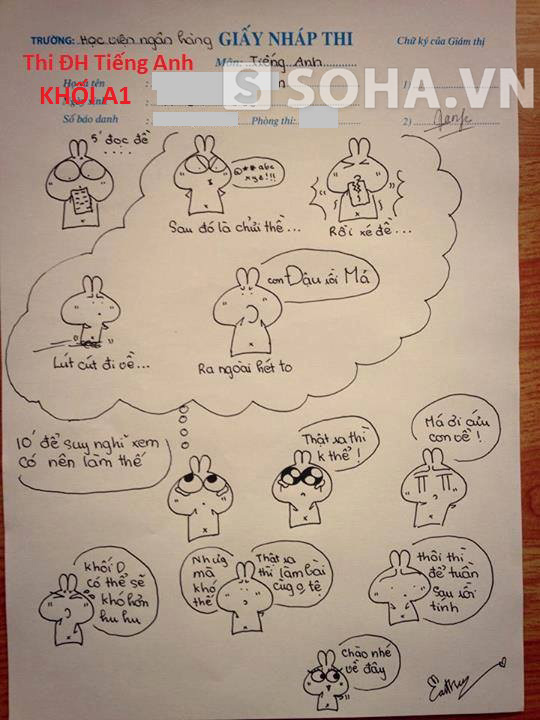 TRƯỜNG: Học viện ngân hàng GIẤY NHÁP THI Chữ ký của Giám thị
Thi ĐH Tiếng Anh
Môn: Tiếng Anh
SOHA.VN
Họ và tên :
1)
KHỐI A1
Ngày sinh :
Số báo danh : Phòng thi:
2)
5' đọc đề
....
@**abc
xyz!!!
Sau đó là chửi thề...
Rồi xé đề...
con Đậu rồi Má
Lút cút đi về...
Ra ngoài hét to
10' để suy nghĩ xem
có nên làm thế
Thật ra thì
k thể!
Má ơi cứu
con về!
khối D
có thể sẽ
khó hơn
hu hu
Nhưg
mà
khó
thế
Thật ra
thì làm bài
cũg o tệ
thôi thì
để tuần
sau rồi
tính
chào nhé
về đây